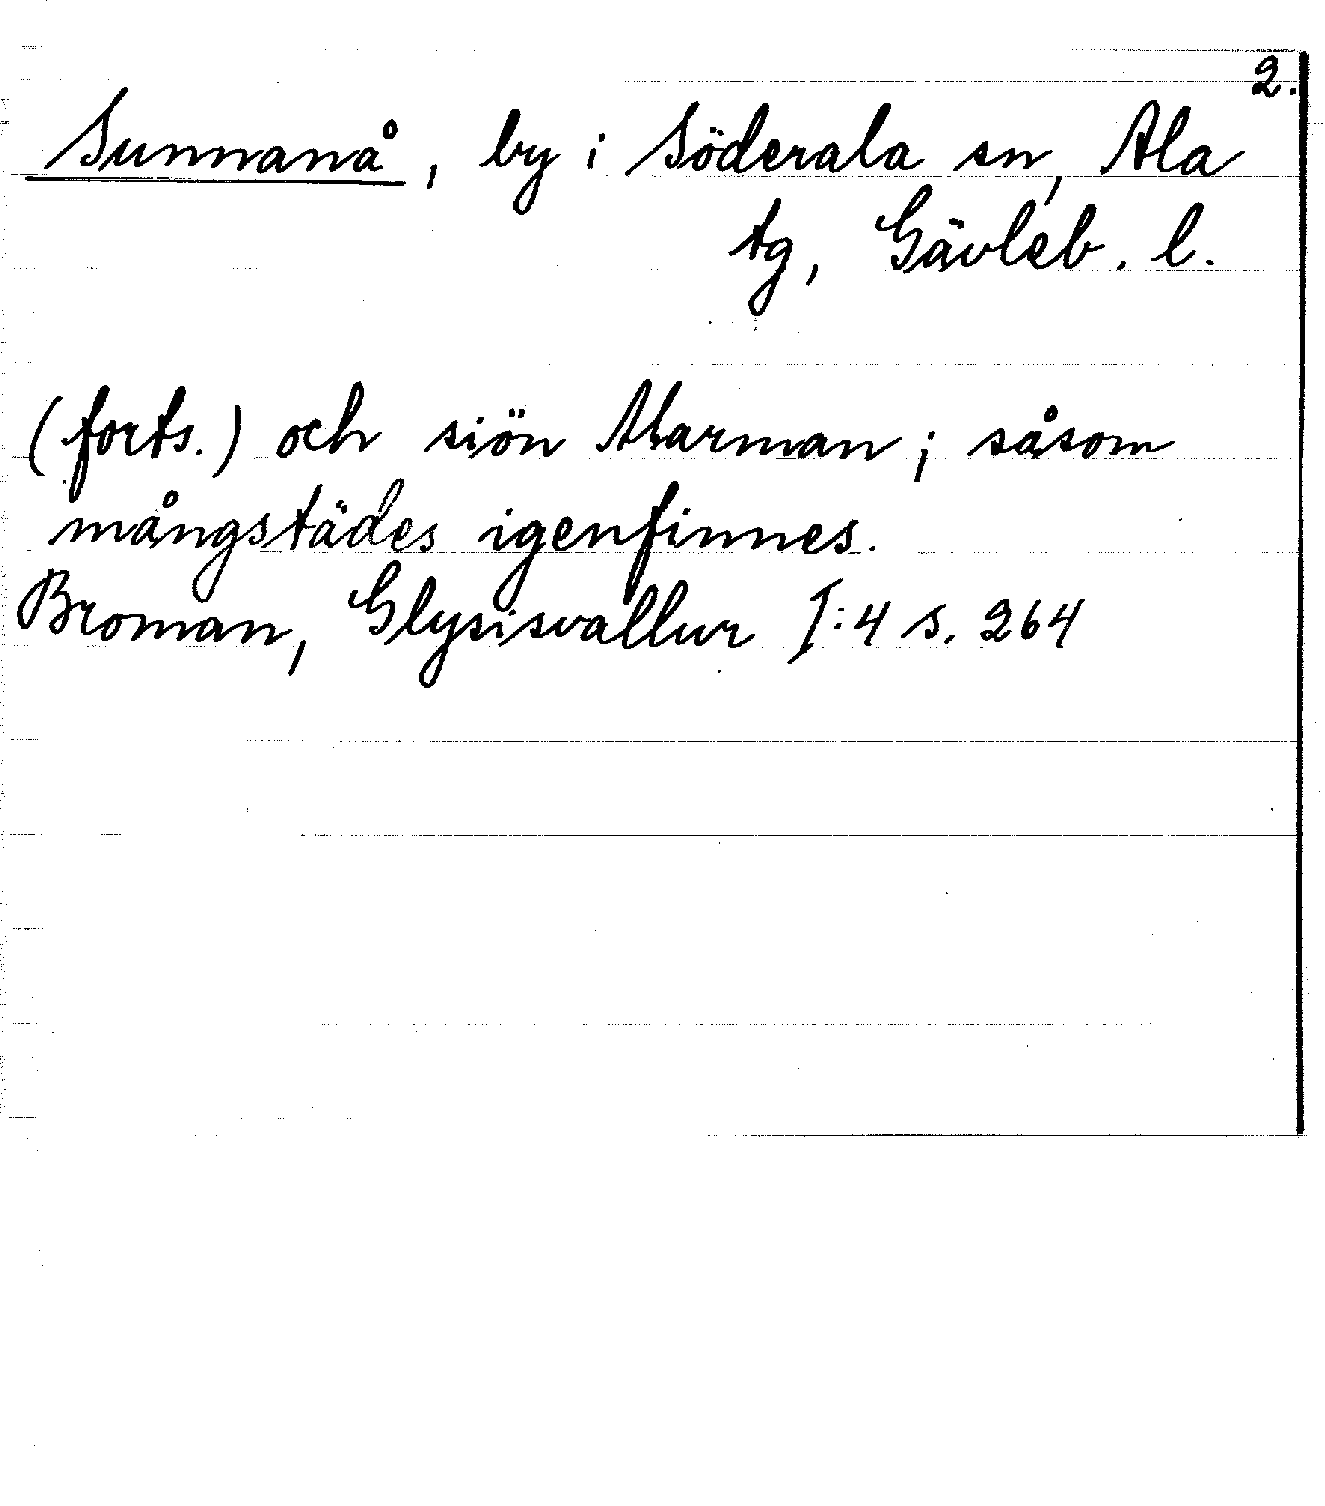 2.
Sunnanå, by i Söderala sn, Ala
tg, Gävleb. l.
(forts.) och siön Marman; såsom
mångstädes igenfinnes.
Broman, Glysisvallur I:4 s. 264